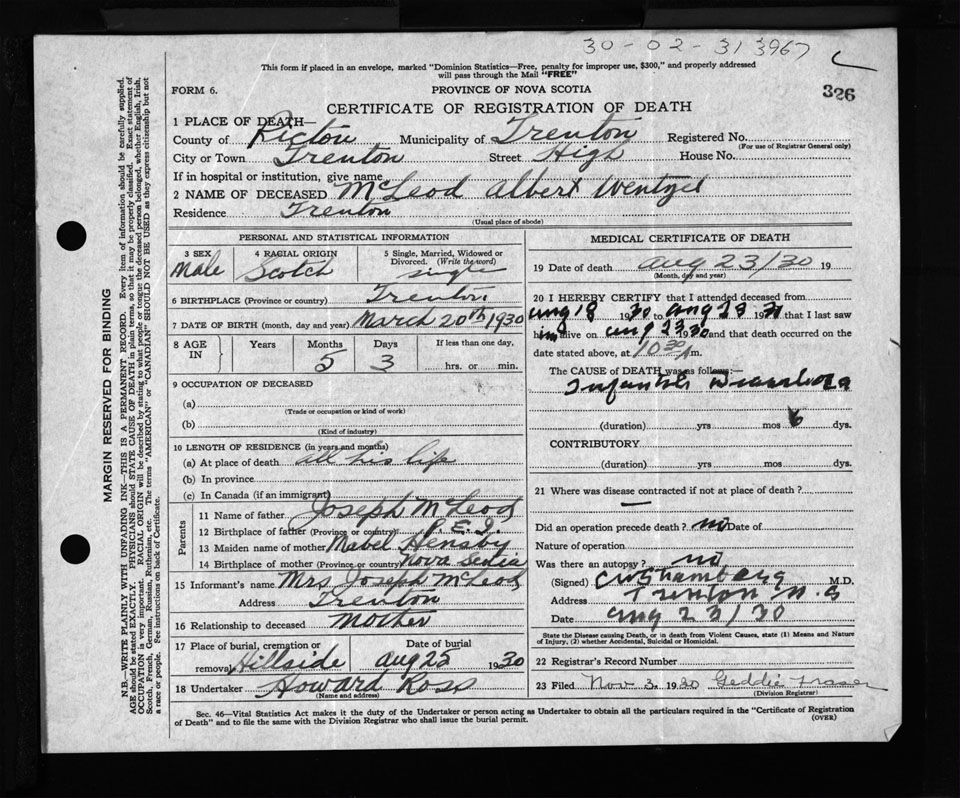 30-02-31 3967
This form if placed in an envelope, marked "Dominion Statistics—Free, penalty for improper use, $300," and properly addressed
will pass through the Mail "FREE"
FORM 6. PROVINCE OF NOVA SCOTIA 326
CERTIFICATE OF REGISTRATION OF DEATH
1 PLACE OF DEATH—
County of Pictou Municipality of Trenton Registered No.
(For use of Registrar General only)
City or Town Trenton Street High House No.
If in hospital or institution, give name
2 NAME OF DECEASED McLeod Albert Wentzel
Residence Trenton
(Usual place of abode)
PERSONAL AND STATISTICAL INFORMATION
3 SEX Male
4 RACIAL ORIGIN Scotch
5 Single, Married, Widowed or Divorced. (Write the word) single
6 BIRTHPLACE (Province or country) Trenton
7 DATE OF BIRTH (month, day and year) March 20th 1930
8 AGE IN Years Months 5 Days 3 If less than one day, hrs. or min.
9 OCCUPATION OF DECEASED
(a)
(Trade or occupation or kind of work)
(b)
(Kind of industry)
10 LENGTH OF RESIDENCE (in years and months)
(a) At place of death all his life
(b) In province
(c) In Canada (if an immigrant)
Parents
11 Name of father Joseph McLeod
12 Birthplace of father (Province or country) P.E.I.
13 Maiden name of mother Mabel Hensby
14 Birthplace of mother (Province or country) Nova Scotia
15 Informant's name Mrs Joseph McLeod
Address Trenton
16 Relationship to deceased Mother
17 Place of burial, cremation or removal Hillside Date of burial Aug 25 1930
18 Undertaker Howard Ross
(Name and address)
MEDICAL CERTIFICATE OF DEATH
19 Date of death Aug 23/30 19
(Month, day and year)
20 I HEREBY CERTIFY that I attended deceased from
Aug 18 1930 to Aug 23 1930 that I last saw
him alive on Aug 23 1930 and that death occurred on the
date stated above, at 10 30 m.
The CAUSE of DEATH was as follows:—
Infantile Diarrhoea
(duration) yrs mos 6 dys.
CONTRIBUTORY
(duration) yrs mos dys.
21 Where was disease contracted if not at place of death?
—
Did an operation precede death? no Date of
Nature of operation
Was there an autopsy? no
(Signed) M.D.
Address Trenton N.S
Date Aug 23/30
State the Disease causing Death, or in death from Violent Causes, state (1) Means and Nature
of Injury, (2) whether Accidental, Suicidal or Homicidal.
22 Registrar's Record Number
23 Filed Nov 3 1930 Geddie Fraser
(Division Registrar)
Sec. 46—Vital Statistics Act makes it the duty of the Undertaker or person acting as Undertaker to obtain all the particulars required in the "Certificate of Registration
of Death" and to file the same with the Division Registrar who shall issue the burial permit.
(OVER)
MARGIN RESERVED FOR BINDING
N.B.—WRITE PLAINLY WITH UNFADING INK—THIS IS A PERMANENT RECORD. Every item of information should be carefully supplied.
AGE should be stated EXACTLY. PHYSICIANS should STATE CAUSE OF DEATH in plain terms, so that it may be properly classified. Exact statement of
OCCUPATION is very important. RACIAL ORIGIN will be described by stating to what people or tongue the deceased person belonged, whether English, Irish,
Scotch, French, German, Russian, Ruthenian, etc. The terms "AMERICAN" or "CANADIAN" SHOULD NOT BE USED as they express citizenship but not
a race or people. See instructions on back of Certificate.